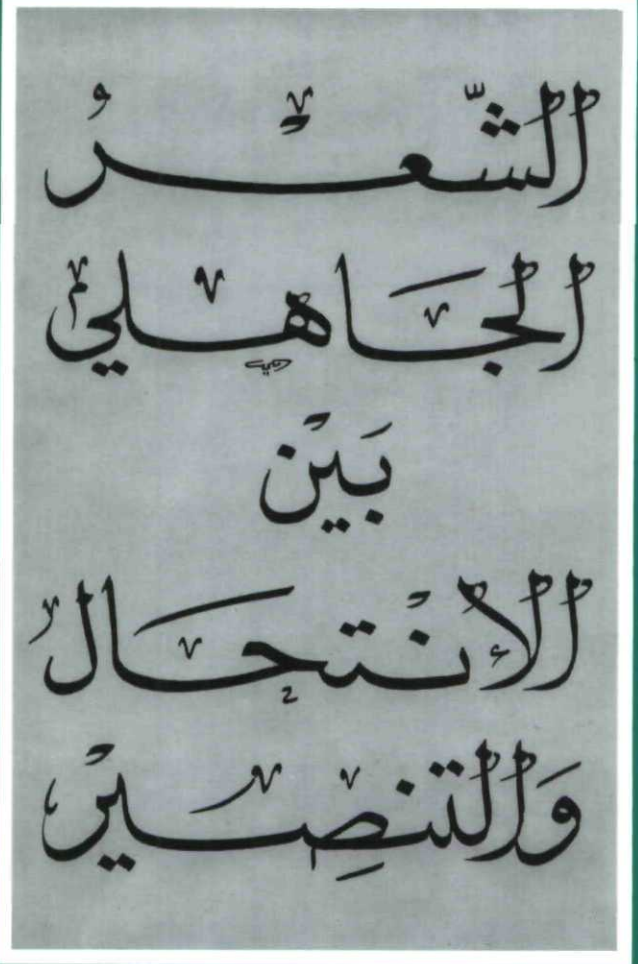 الشّعْرُ
الجَاهلي
بَيْن
الإنْتحَالُ
وَالتنصِيرْ